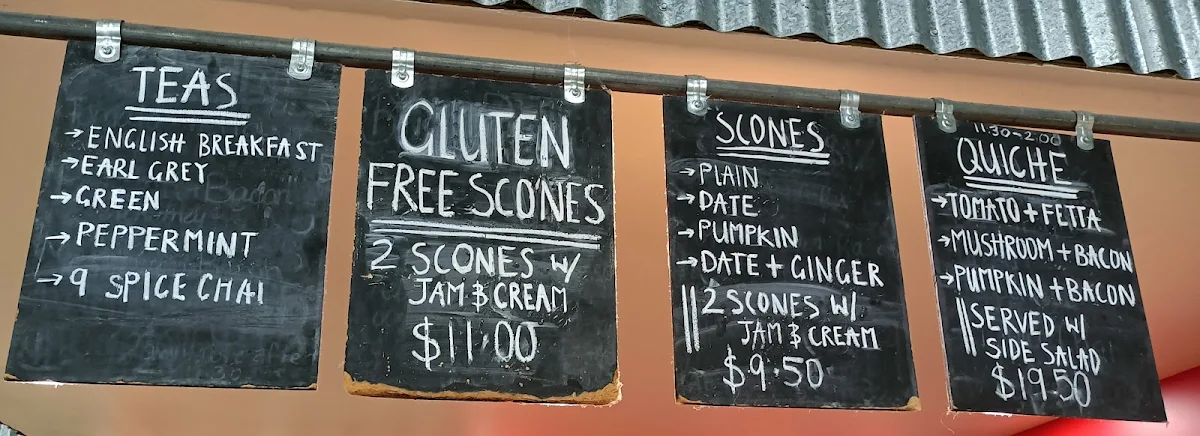 TEAS
→ ENGLISH BREAKFAST
→ EARL GREY
→ GREEN
→ PEPPERMINT
→ 9 SPICE CHAI
GLUTEN
FREE SCONES
2 SCONES W/
JAM & CREAM
$11.00
SCONES
→ PLAIN
→ DATE
→ PUMPKIN
→ DATE + GINGER
2 SCONES W/
JAM & CREAM
$9.50
11:30-2:00
QUICHE
→ TOMATO + FETTA
→ MUSHROOM + BACON
→ PUMPKIN + BACON
SERVED W/
SIDE SALAD
$19.50